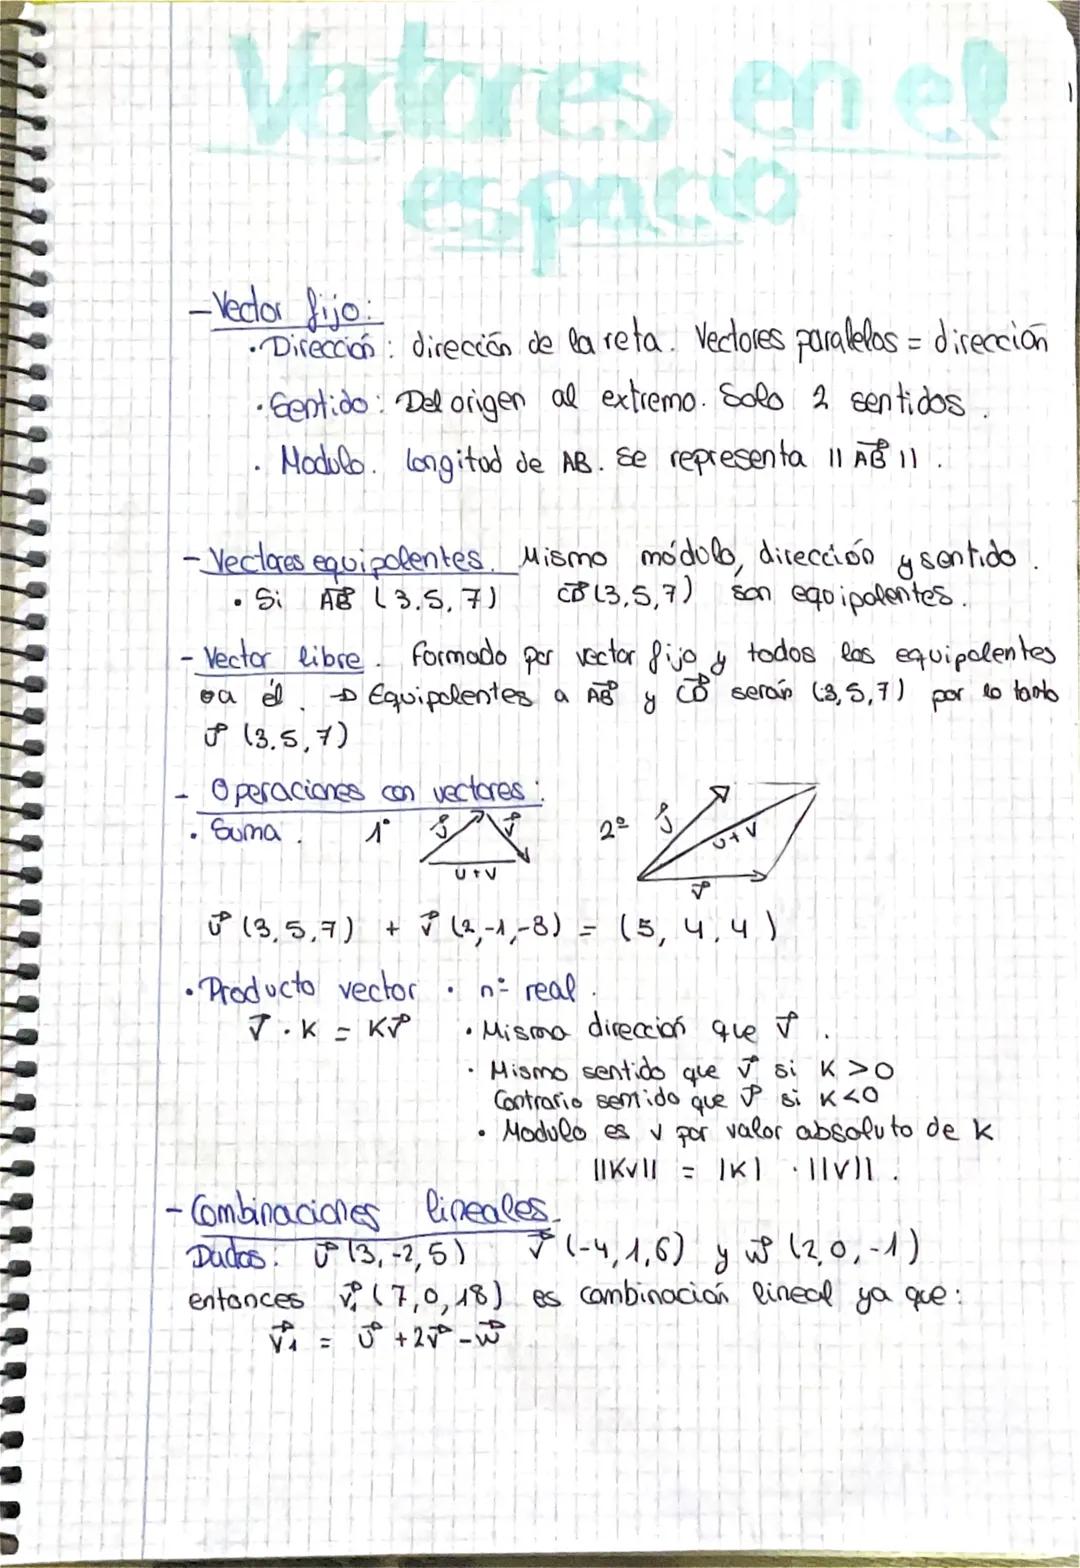 Vectores en el
espacio
- Vector fijo:
• Dirección: direción de la reta. Vectores paralelos = dirección
• Sentido: Del origen al extremo. Solo 2 sentidos.
• Modulo. longitud de AB. se representa || AB ||.
- Vectores equipolentes. Mismo módulo, dirección y sentido.
• Si AB (3,5,7) CD (3,5,7) son equipolentes.
- Vector libre. formado por vector fijo y todos los equipolentes
a él. → Equipolentes a AB y CD serán (3,5,7) por lo tanto
u (3,5,7)
- Operaciones con vectores:
• Suma. 1º u v 2º u u+v
u+v v
u (3,5,7) + v (2,-1,-3) = (5, 4, 4)
• Producto vector • nº real.
v · K = Kv • Misma dirección que v.
• Mismo sentido que v si K > 0
Contrario sentido que v si K < 0
• Modulo es v por valor absoluto de K
||Kv|| = |K| · ||v||.
- Combinaciones lineales.
Dados: u (3,-2,5) v (-4,1,6) y w (2,0,-1)
entonces v₁ (7,0,18) es combinación lineal ya que:
v₁ = u + 2v - w